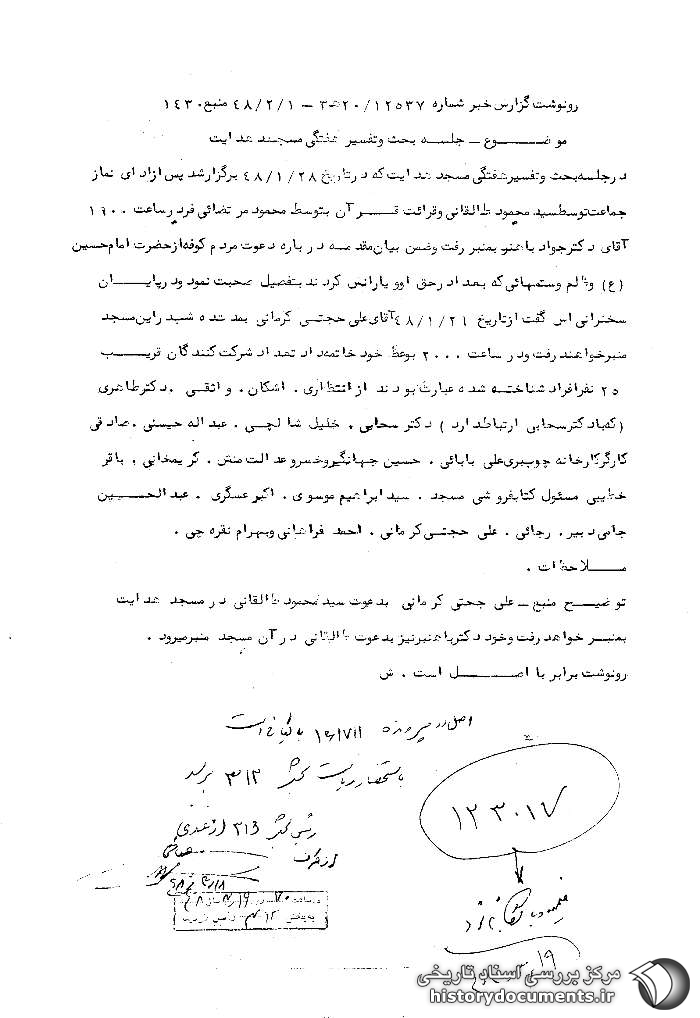 رونوشت گزارش خبر شماره ۱۲۵۳۷/ ۲۰ه‍۳ – ۴۸/۲/۱ منبع ۱۴۳۰
موضــــــوع – جلســه بحث وتفسیر هفتگی مسجــد هدایت
درجلسه بحث وتفسیرهفتگی مسجد هدایت که درتاریخ ۴۸/۱/۲۸ برگزارشد پس ازادای نماز
جماعت توسط سید محمود طالقانی وقرائت قـــرآن بتوسط محمود مرتضائی فرد رساعت ۱۹۰۰
آقای دکترجواد باهنر بمنبر رفت وضمن بیان مقدمــه درباره دعوت مردم کوفه ازحضرت امام حسین
(ع) وظلم وستمهائی که بعداً درحق اوو یارانس کردند بتفصیل صحبت نمود ودرپایــــان
سخنرانی اس گفت ازتاریخ ۴۸/۱/۲۹ آقای علی حجتی کرمانی بمدت ده شب دراین مسجد
منبرخواهند رفت ودرساعت ۲۰۰۰ بوعظ خود خاتمه داد تعداد شرکت کنندگان قریــــب
۲۵۰ نفرافراد شناخته شده عبارت بودند از انتظاری. اشکان. واثقی. دکترطاهری
(که باد کترسحابی ارتباط دارد ) دکتر سحابی. خلیل شالچی. عبداله حیسنی. صادقی
کارگرکارخانه چوب بری علی بابائی. حسین جهانگیر وخسروعدالت منش. کریمخانی. باقر
خطیبی مسئول کتابفروشی مسجد. سید ابراهیم موسوی. اکبرعسگری. عبدالحــــسین
جامی دبیر. رجائی. علی حجتی کرمانی. احمد فراهانی وبهرام نقره چی.
مــــلاحظات.
توضیــــح منبع – علی جحتی کرمانی بدعوت سید محمود طالقانی در مسجد هدایت
بمنبــر خواهد رفت وخود دکترباهنرنیز بدعوت طالقانی درآن مسجد منبرمیرود.
رونوشت برابر با اصــــــل است. ش
اصل در پرونده
باستحضار ریاست بخش ۳۱۲ برسد
رئیس بخش ۳۱۲ ازغندی
۱۲۳۰۱۷
مرکز بررسی اسناد تاریخی
historydocuments.ir